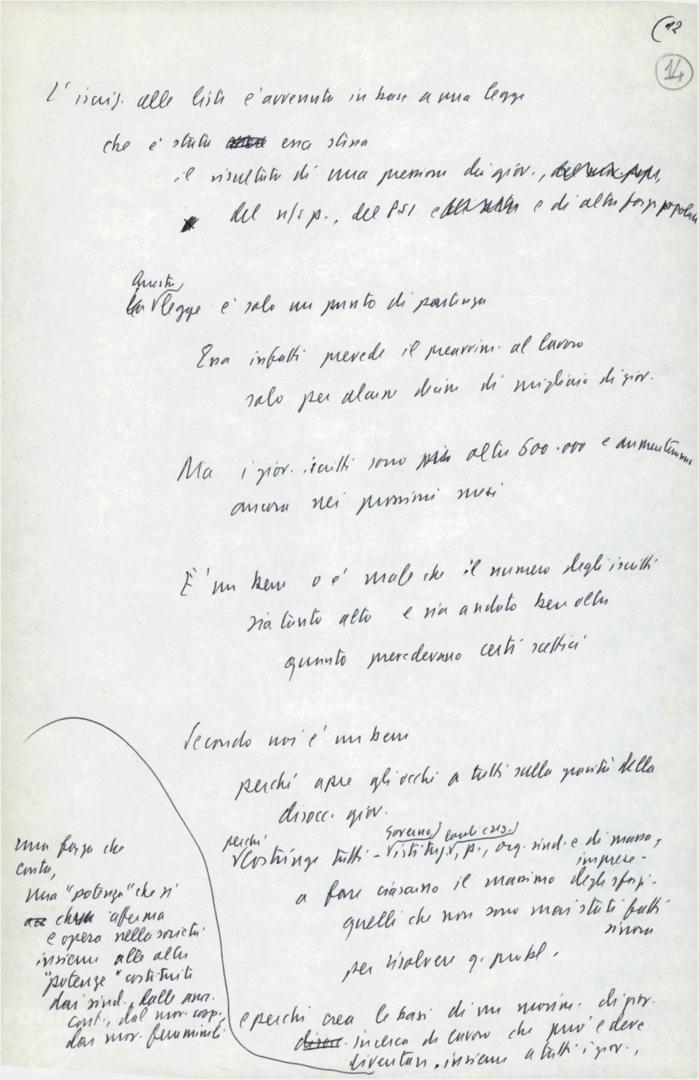 (12
14
L'iscriz. alle liste è avvenuta in base a una legge
che è stata essa stessa
il risultato di una pressione dei giov.,
del n/s p., del PSI e di altre forze popolari
Questa
legge è solo un punto di partenza
Essa infatti prevede il preavviam. al lavoro
solo per alcune decine di migliaia di giov.
Ma i giov. iscritti sono oltre 600.000 e aumenteranno
ancora nei prossimi mesi
È un bene o è male che il numero degli iscritti
sia tanto alto e sia andato ben oltre
quanto prevedevano certi scettici
Secondo noi è un bene
perché apre gli occhi a tutti sulla gravità della
disocc. giov.
perché costringe tutti - Governo, istituz., p., org. sind. e di massa,
imprese -
a fare ciascuno il massimo degli sforzi.
quelli che non sono mai stati fatti
sinora
per risolvere q. probl.
e perché crea le basi di un movim. di giov.
in cerca di lavoro che può e deve
diventare, insieme a tutti i giov.,
una forza che
conta,
una "potenza" che si
afferma
e opera nella società
insieme alle altre
"potenze" costituite
dai sind., dalle ass.
cont., dal mov. coop.,
dai mov. femminili